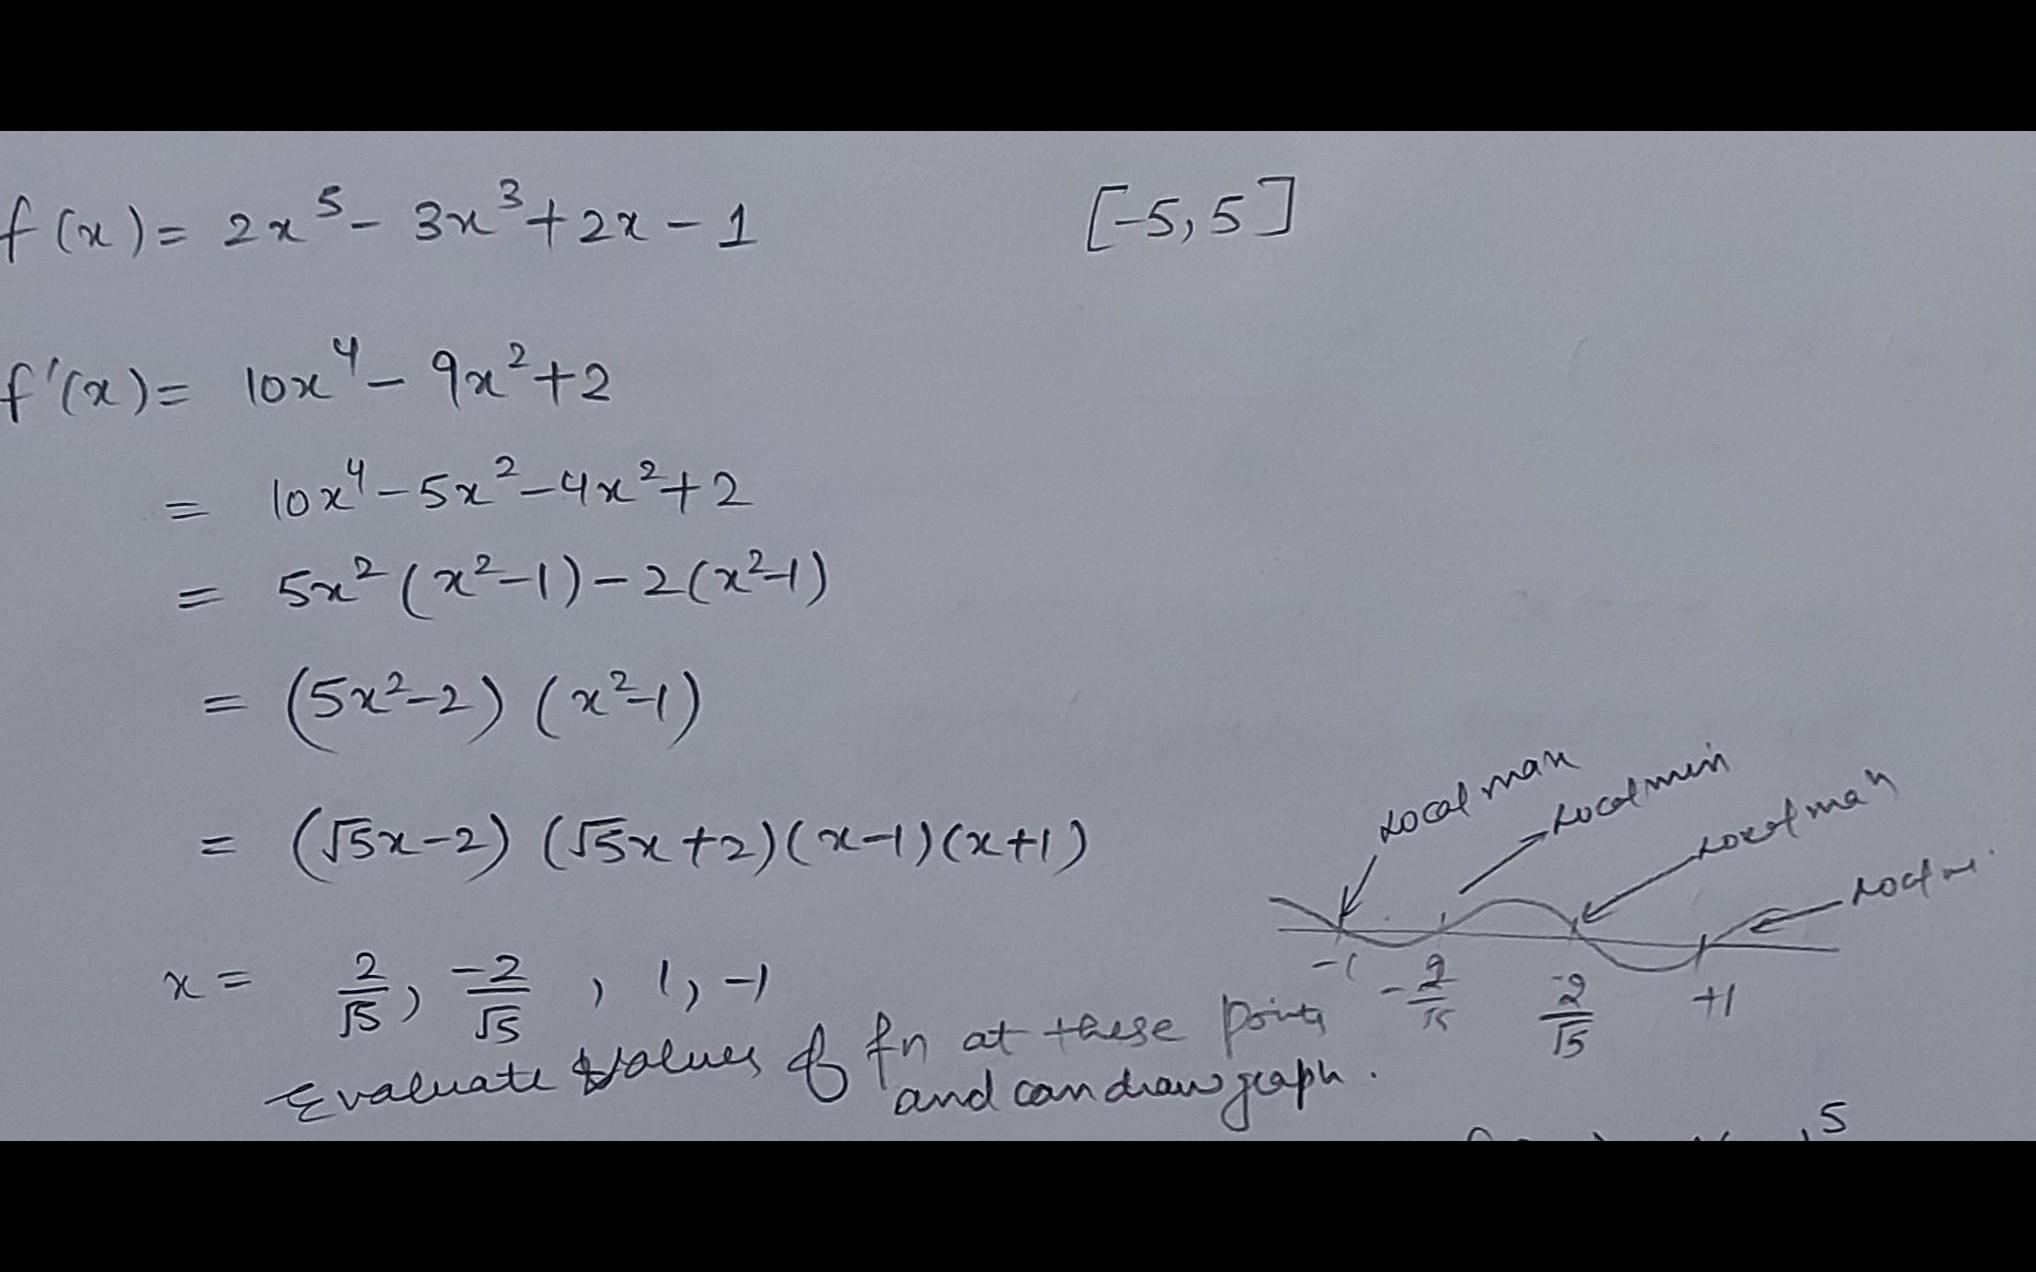 f(x) = 2x⁵ - 3x³ + 2x - 1 [-5, 5]
f'(x) = 10x⁴ - 9x² + 2
= 10x⁴ - 5x² - 4x² + 2
= 5x² (x²-1) - 2(x²-1)
= (5x²-2) (x²-1)
= (√5x-2) (√5x+2)(x-1)(x+1)
Local max
Local min
Local max
-1 -2/√5 -2/√5 +1
x = 2/√5, -2/√5, 1, -1
Evaluate values of fn at these points
and can draw graph.
5